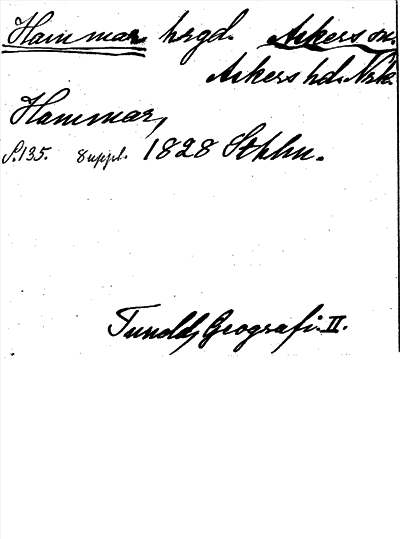 Hammar hrgd. Askers sn.
Askers hd. Nrk.
Hammar,
S. 135. Suppl. 1828 Sthlm.
Tunelds Geografi II.